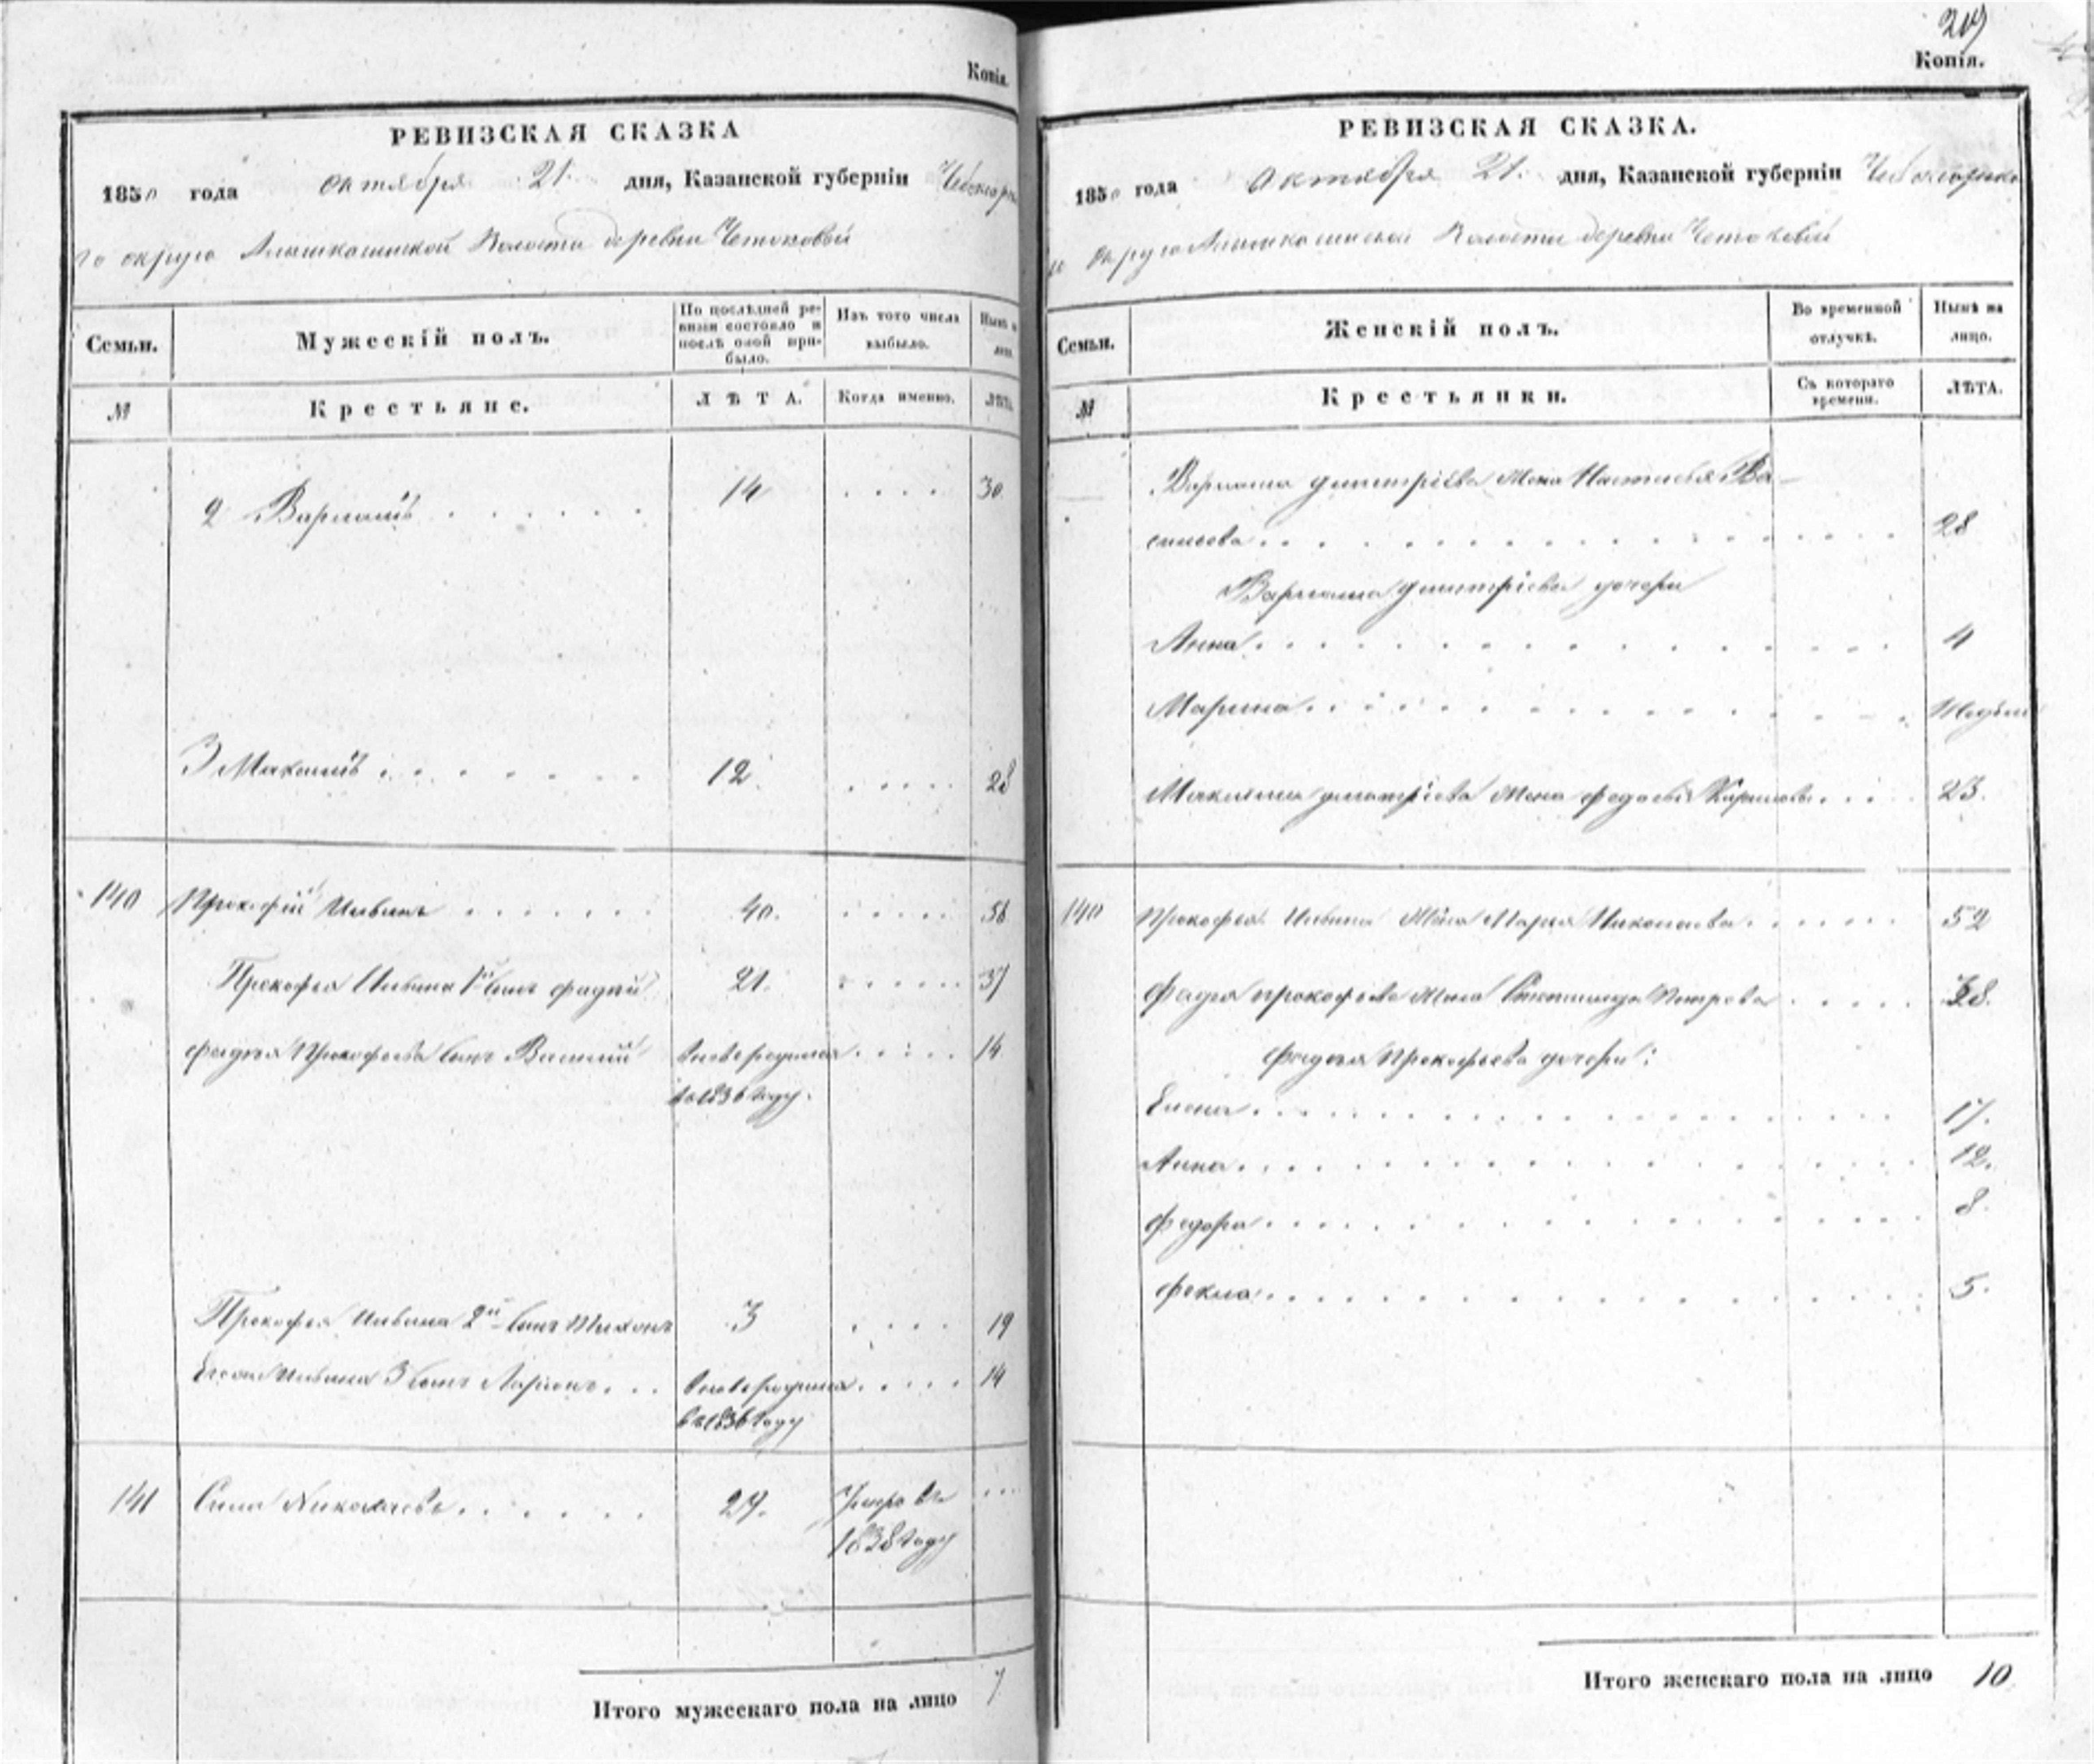 Копія.
РЕВИЗСКАЯ СКАЗКА
1850 года октября 21 дня, Казанской губерніи Чебоксарска
го округа Алышкасинской Волости деревни
Семьи.
Мужескій полъ.
По послѣдней ре-
визіи состояло и
послѣ оной при-
было.
Изъ того числа
выбыло.
Нынѣ на
лицо.
№
Крестьяне.
ЛѢТА.
Когда именно.
ЛѢТА.
2 Варламъ 14 30
3 Максимъ 12 28
140 Прокофій Ильинъ 40. 56
Прокофья Ильина 1й сынъ Фадѣй 21. 37
Фадѣя Прокофьева сынъ Василій После ревизіи 14
въ 1836 году.
Прокофья Ильина 2й сынъ Тихонъ 3 19
Ильина 3 сынъ Ларіонъ 14
въ 1836 году
141 Сила Николаевъ 29. Умеръ въ
1838 году
Итого мужескаго пола на лицо 7
209
Копія.
РЕВИЗСКАЯ СКАЗКА.
1850 года октября 21. дня, Казанской губерніи Чебоксарска
го округа Алышкасинской Волости деревни
Семьи.
Женскій полъ.
Во временной
отлучкѣ.
Нынѣ на
лицо.
№
Крестьянки.
Съ котораго
времени.
ЛѢТА.
Варлама Дмитріева жена Настасья Ва-
сильева 28
Варлама Дмитріева дочери
Анна 4
Марина Недѣли
Максима Дмитріева жена Федосья Кирилова 23.
140 Прокофья Ильина жена Марья Николаева 52
Фадѣя Прокофьева жена Степанида Петрова 38.
Фадѣя Прокофьева дочери:
Елена 17.
Анна 12.
Федора 8.
Фекла 5.
Итого женскаго пола на лицо 10